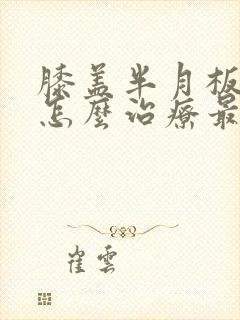 膝盖半月板
怎麼治療最
崔雲